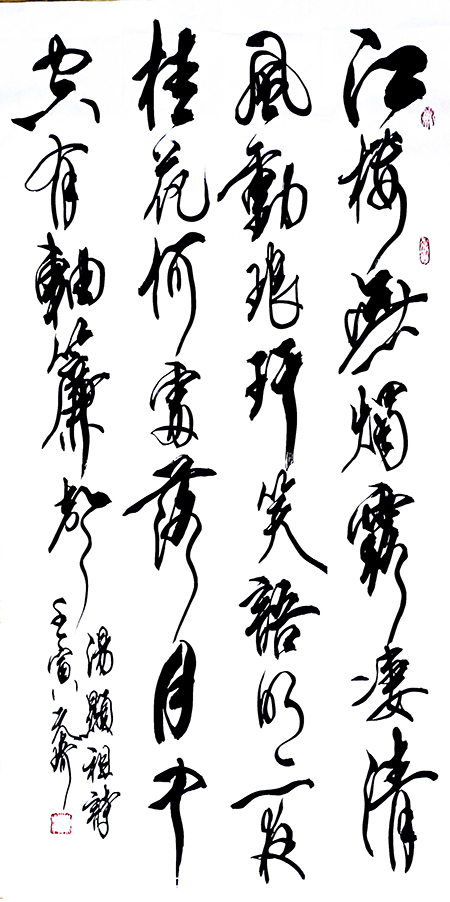 江樓無燭露凄清
風動琅玕笑語明一夜
桂花何處落月中
空有軸簾聲
湯顯祖詩
壬寅